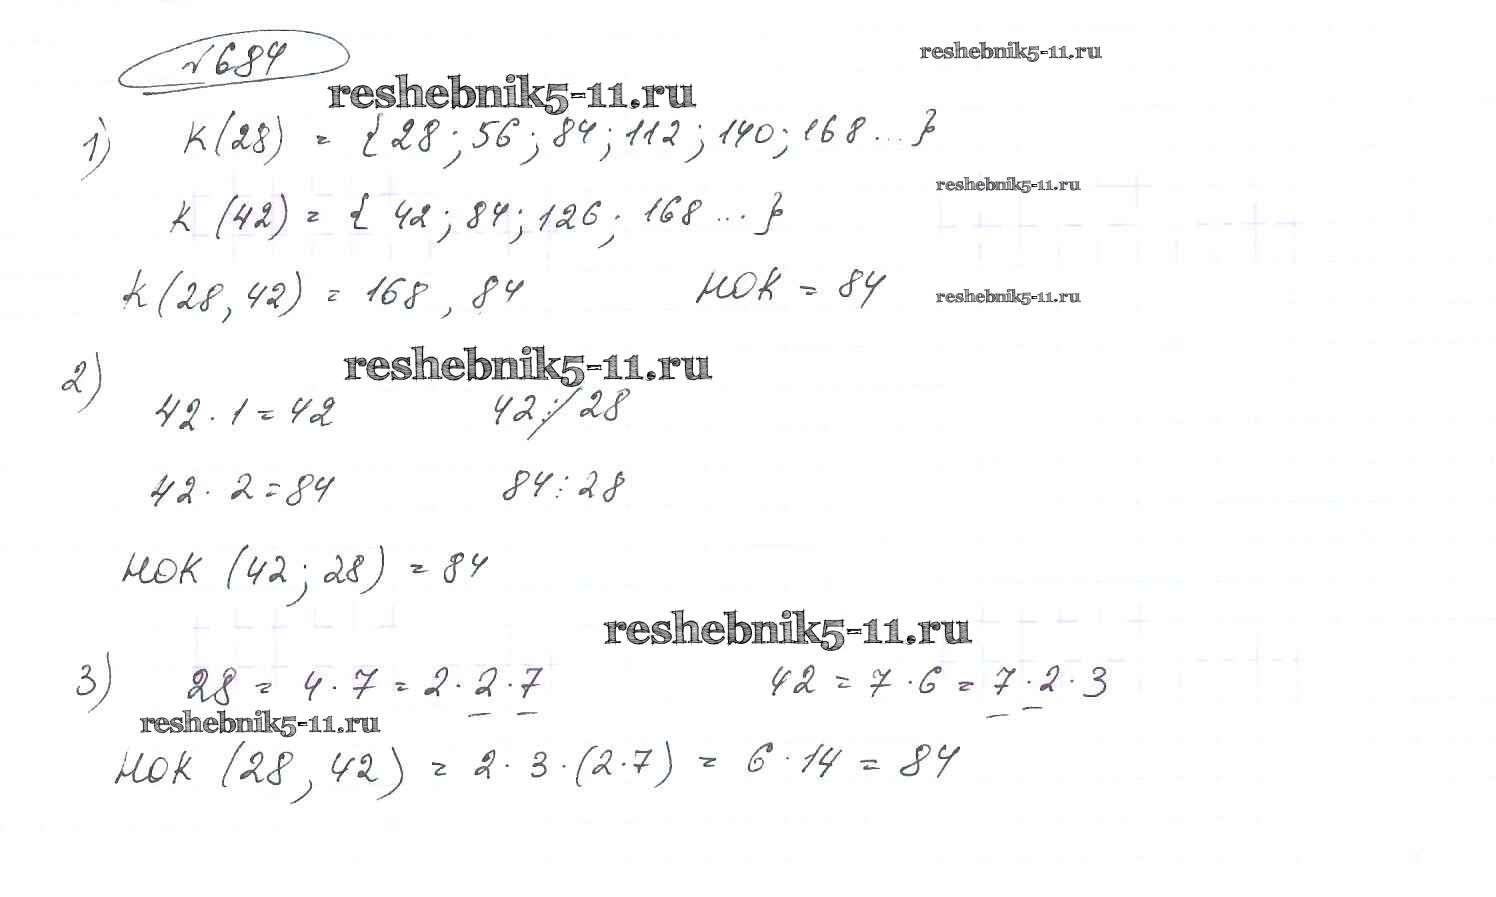 №684
reshebnik5-11.ru
reshebnik5-11.ru
1) К(28) = {28; 56; 84; 112; 140; 168...}
reshebnik5-11.ru
К(42) = {42; 84; 126; 168...}
К(28, 42) = 168, 84 НОК = 84
reshebnik5-11.ru
reshebnik5-11.ru
2)
42 · 1 = 42 42 :/ 28
42 · 2 = 84 84 : 28
НОК (42; 28) = 84
reshebnik5-11.ru
3) 28 = 4 · 7 = 2 · 2 · 7 42 = 7 · 6 = 7 · 2 · 3
reshebnik5-11.ru
НОК (28, 42) = 2 · 3 · (2 · 7) = 6 · 14 = 84